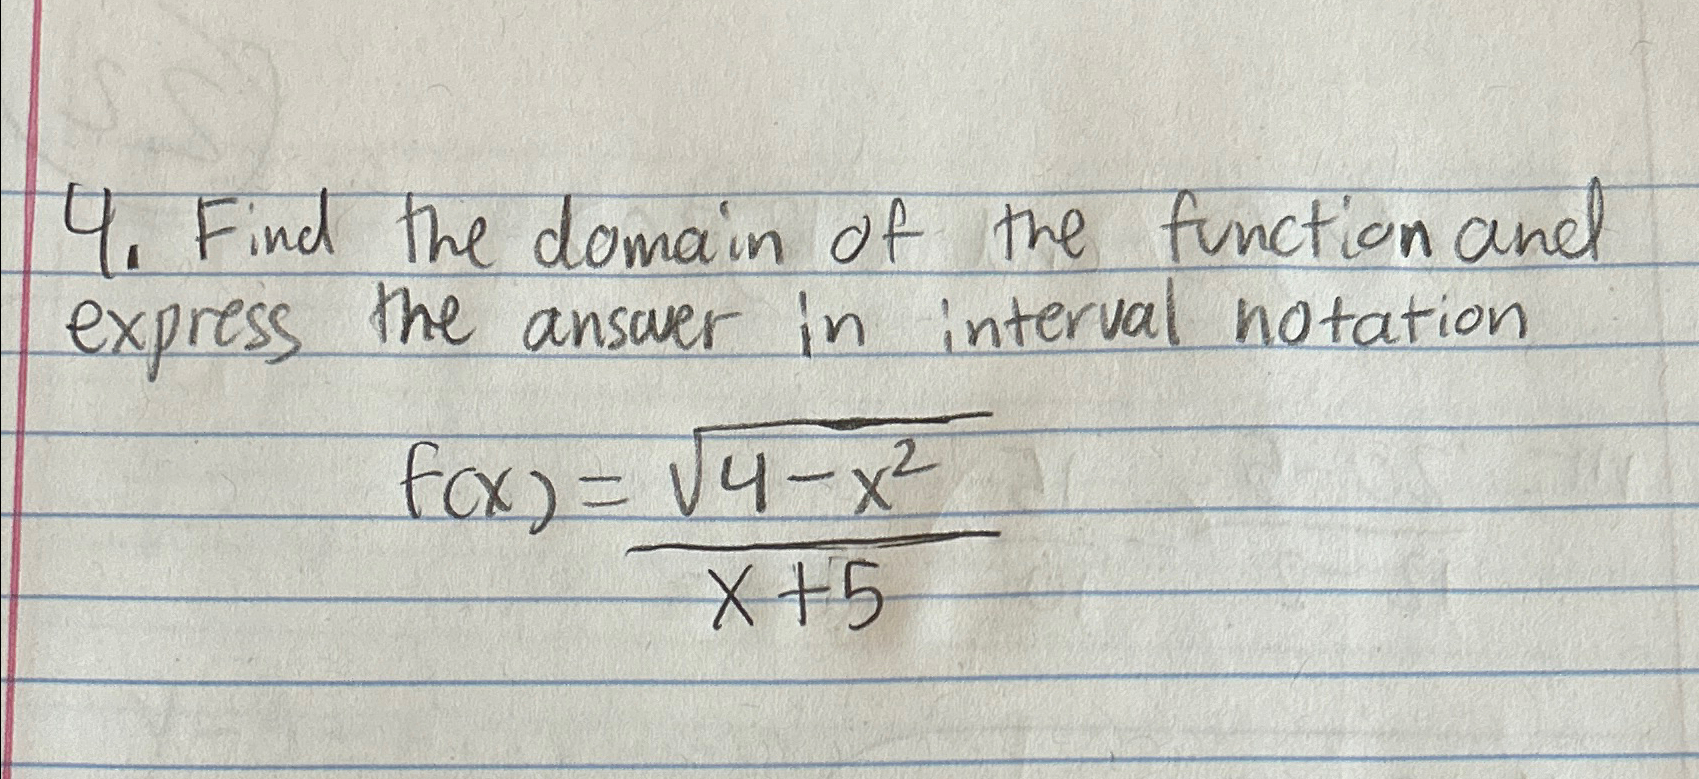 4. Find the domain of the function and
express the answer in interval notation
f(x) = √(4-x²)
x+5